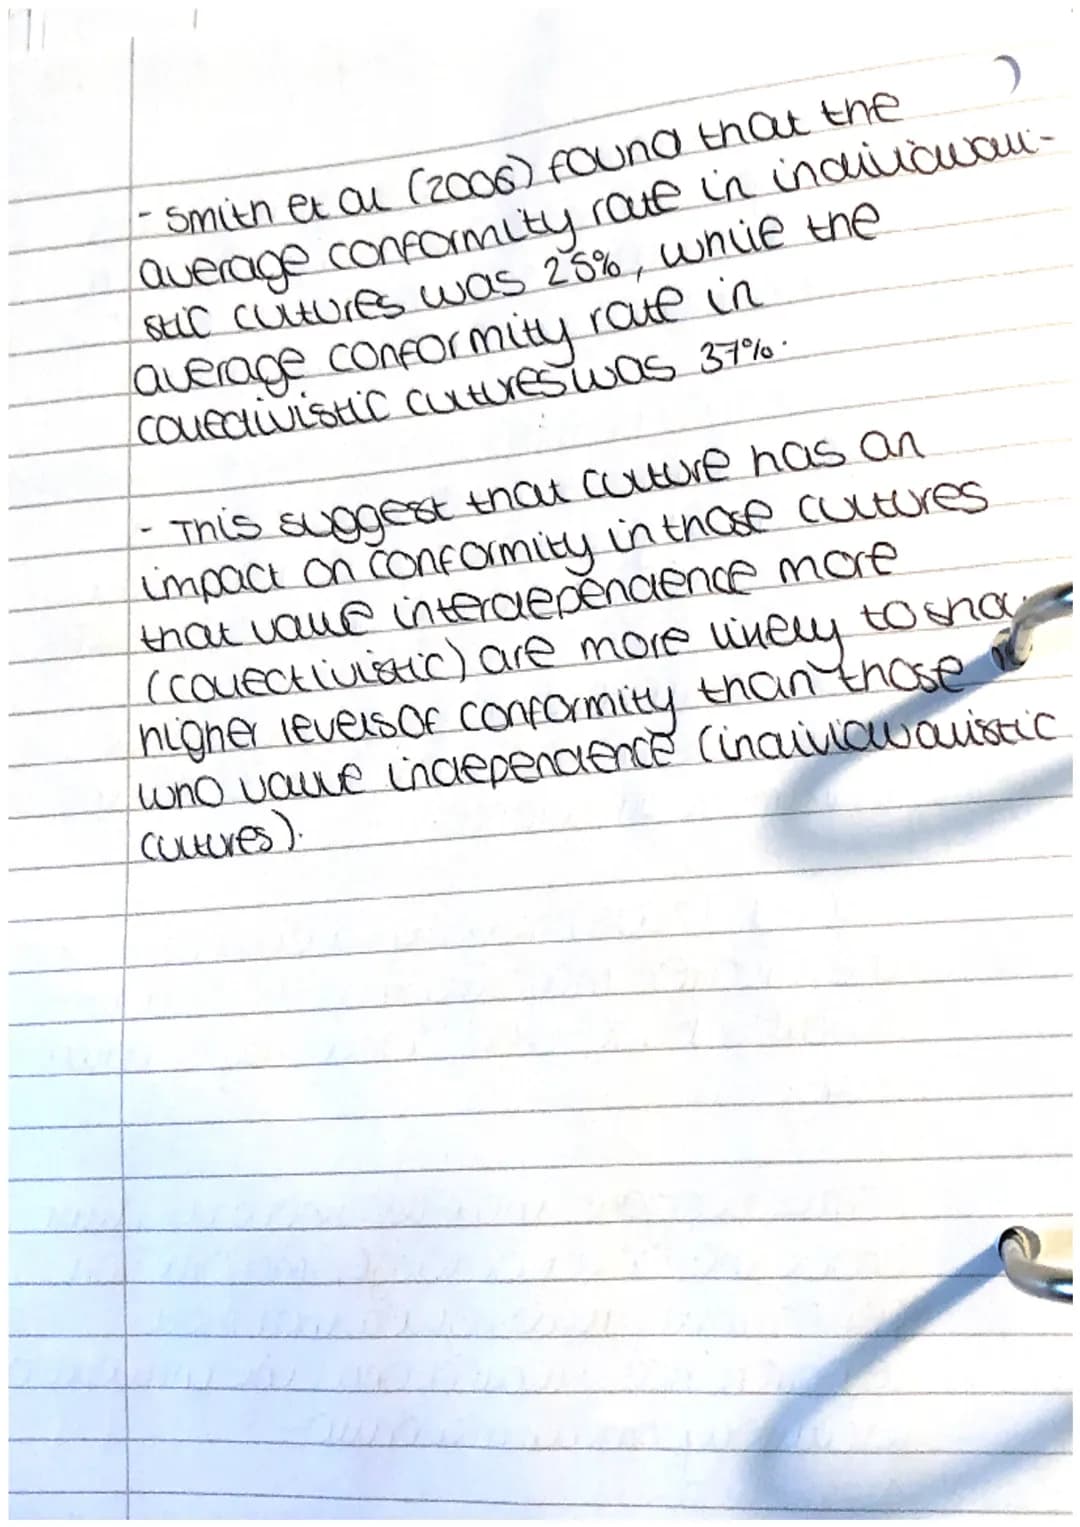 - Smith et al (2006) found that the
average conformity rate in individuali-
stic cultures was 25%, while the
average conformity rate in
collectivistic cultures was 37%.
- This suggest that culture has an
impact on conformity in those cultures
that value interdependence more
(collectivistic) are more likely to sho
higher levels of conformity than those
who value independence (individualistic
cultures).